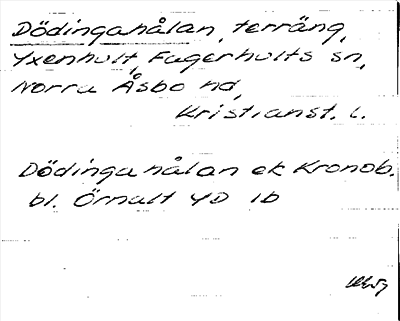 Dödingahålan, terräng,
Yxenhult, Fagerhults sn,
Norra Åsbo hd,
Kristianst. l.
Dödingahålan ek Kronob.
bl. Örnalt 4D 1b